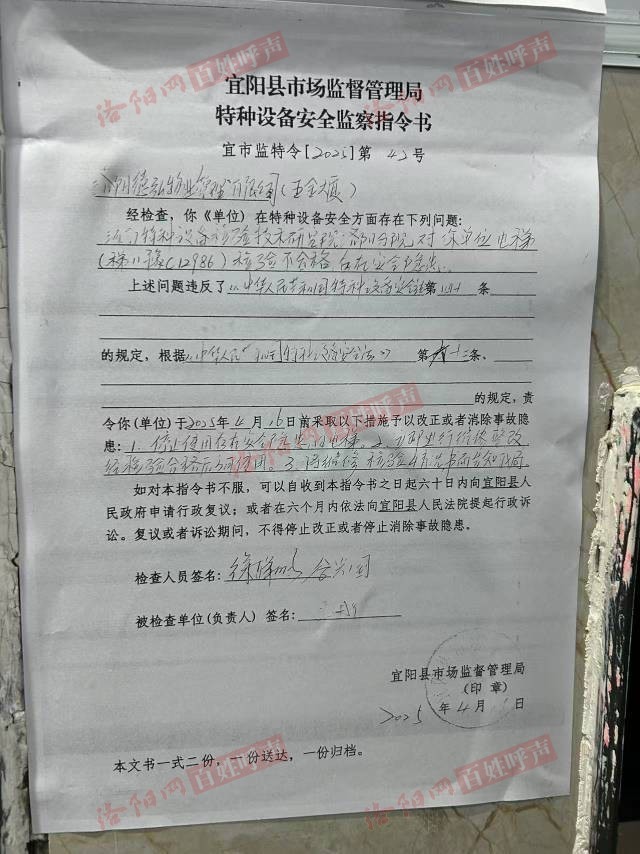 宜阳县市场监督管理局
特种设备安全监察指令书
宜市监特令[2025]第 42 号
物业管理有限公司(五金大厦)
经检查,你《单位》在特种设备安全方面存在下列问题:
特种设备检验技术研究院 分院对你单位电梯
检验不合格 存在安全隐患.
上述问题违反了《中华人民共和国特种设备安全法》第 条
的规定,根据《中华人民共和国特种设备安全法》 第 条、
的规定,责
令你(单位)于2025年4月16日前采取以下措施予以改正或者消除事故隐
患:1.停止使用存在安全隐患的电梯. 2. 立即进行维修整改
经检验合格后方可使用. 3. 检验情况书面告知我局
如对本指令书不服,可以自收到本指令书之日起六十日内向宜阳县人
民政府申请行政复议;或者在六个月内依法向宜阳县人民法院提起行政诉
讼。复议或者诉讼期间,不得停止改正或者停止消除事故隐患。
检查人员签名:
被检查单位(负责人) 签名:
宜阳县市场监督管理局
(印 章)
2025 年 4 月 日
本文书一式二份,一份送达,一份归档。
洛阳网 百姓呼声
洛阳网 百姓呼声
洛阳网 百姓呼声
洛阳网 百姓呼声